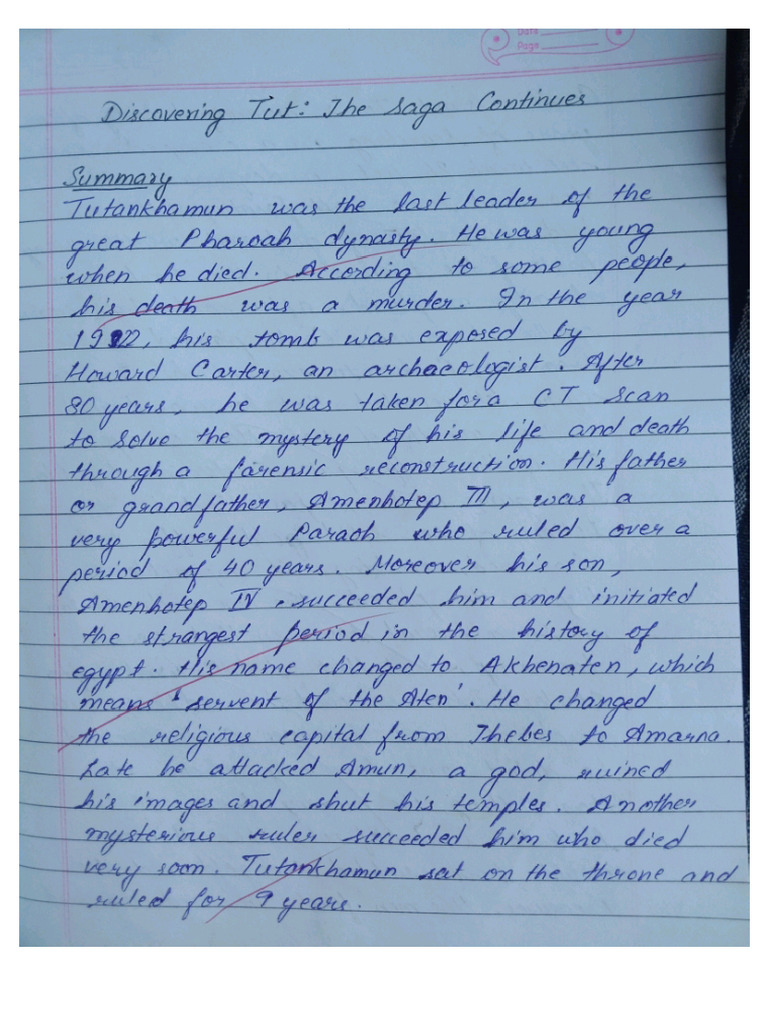 Date
Page
Discovering Tut: The Saga Continues
Summary
Tutankhamun was the last leader of the
great Pharoah dynasty. He was young
when he died. According to some people,
his death was a murder. In the year
1922, his tomb was exposed by
Howard Carter, an archaeologist. After
80 years, he was taken for a CT scan
to solve the mystery of his life and death
through a forensic reconstruction. His father
or grandfather, Amenhotep III, was a
very powerful Paraoh who ruled over a
period of 40 years. Moreover his son,
Amenhotep IV, succeeded him and initiated
the strangest period in the history of
egypt. His name changed to Akhenaten, which
means 'servent of the Aten'. He changed
the religious capital from Thebes to Amarna.
Late he attacked Amun, a god, ruined
his images and shut his temples. Another
mysterious ruler succeeded him who died
very soon. Tutankhamun sat on the throne and
ruled for 9 years.